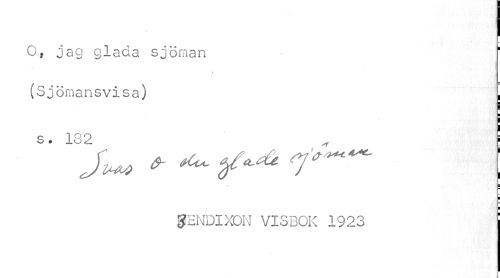 O, jag glada sjöman
(Sjömansvisa)
s. 182
Svas o du glade sjöman
BENDIXON VISBOK 1923